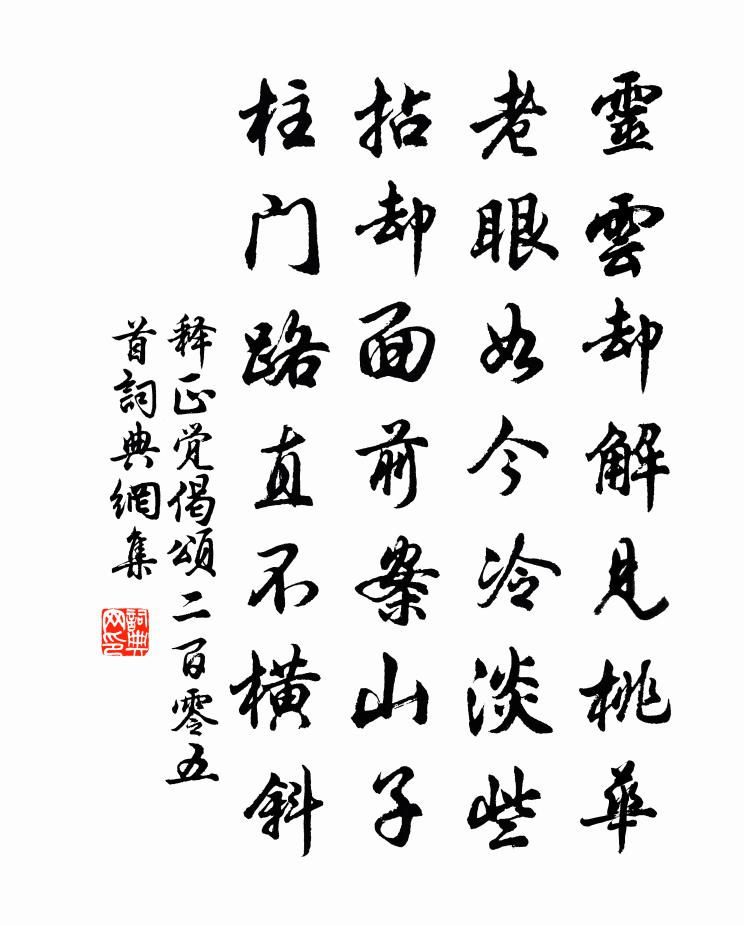 靈雲却解見桃華
老眼如今冷淡些
拈却面前案山子
柱门路直不横斜
释正觉偈頌二百零五
首詞典網集
詞典网印